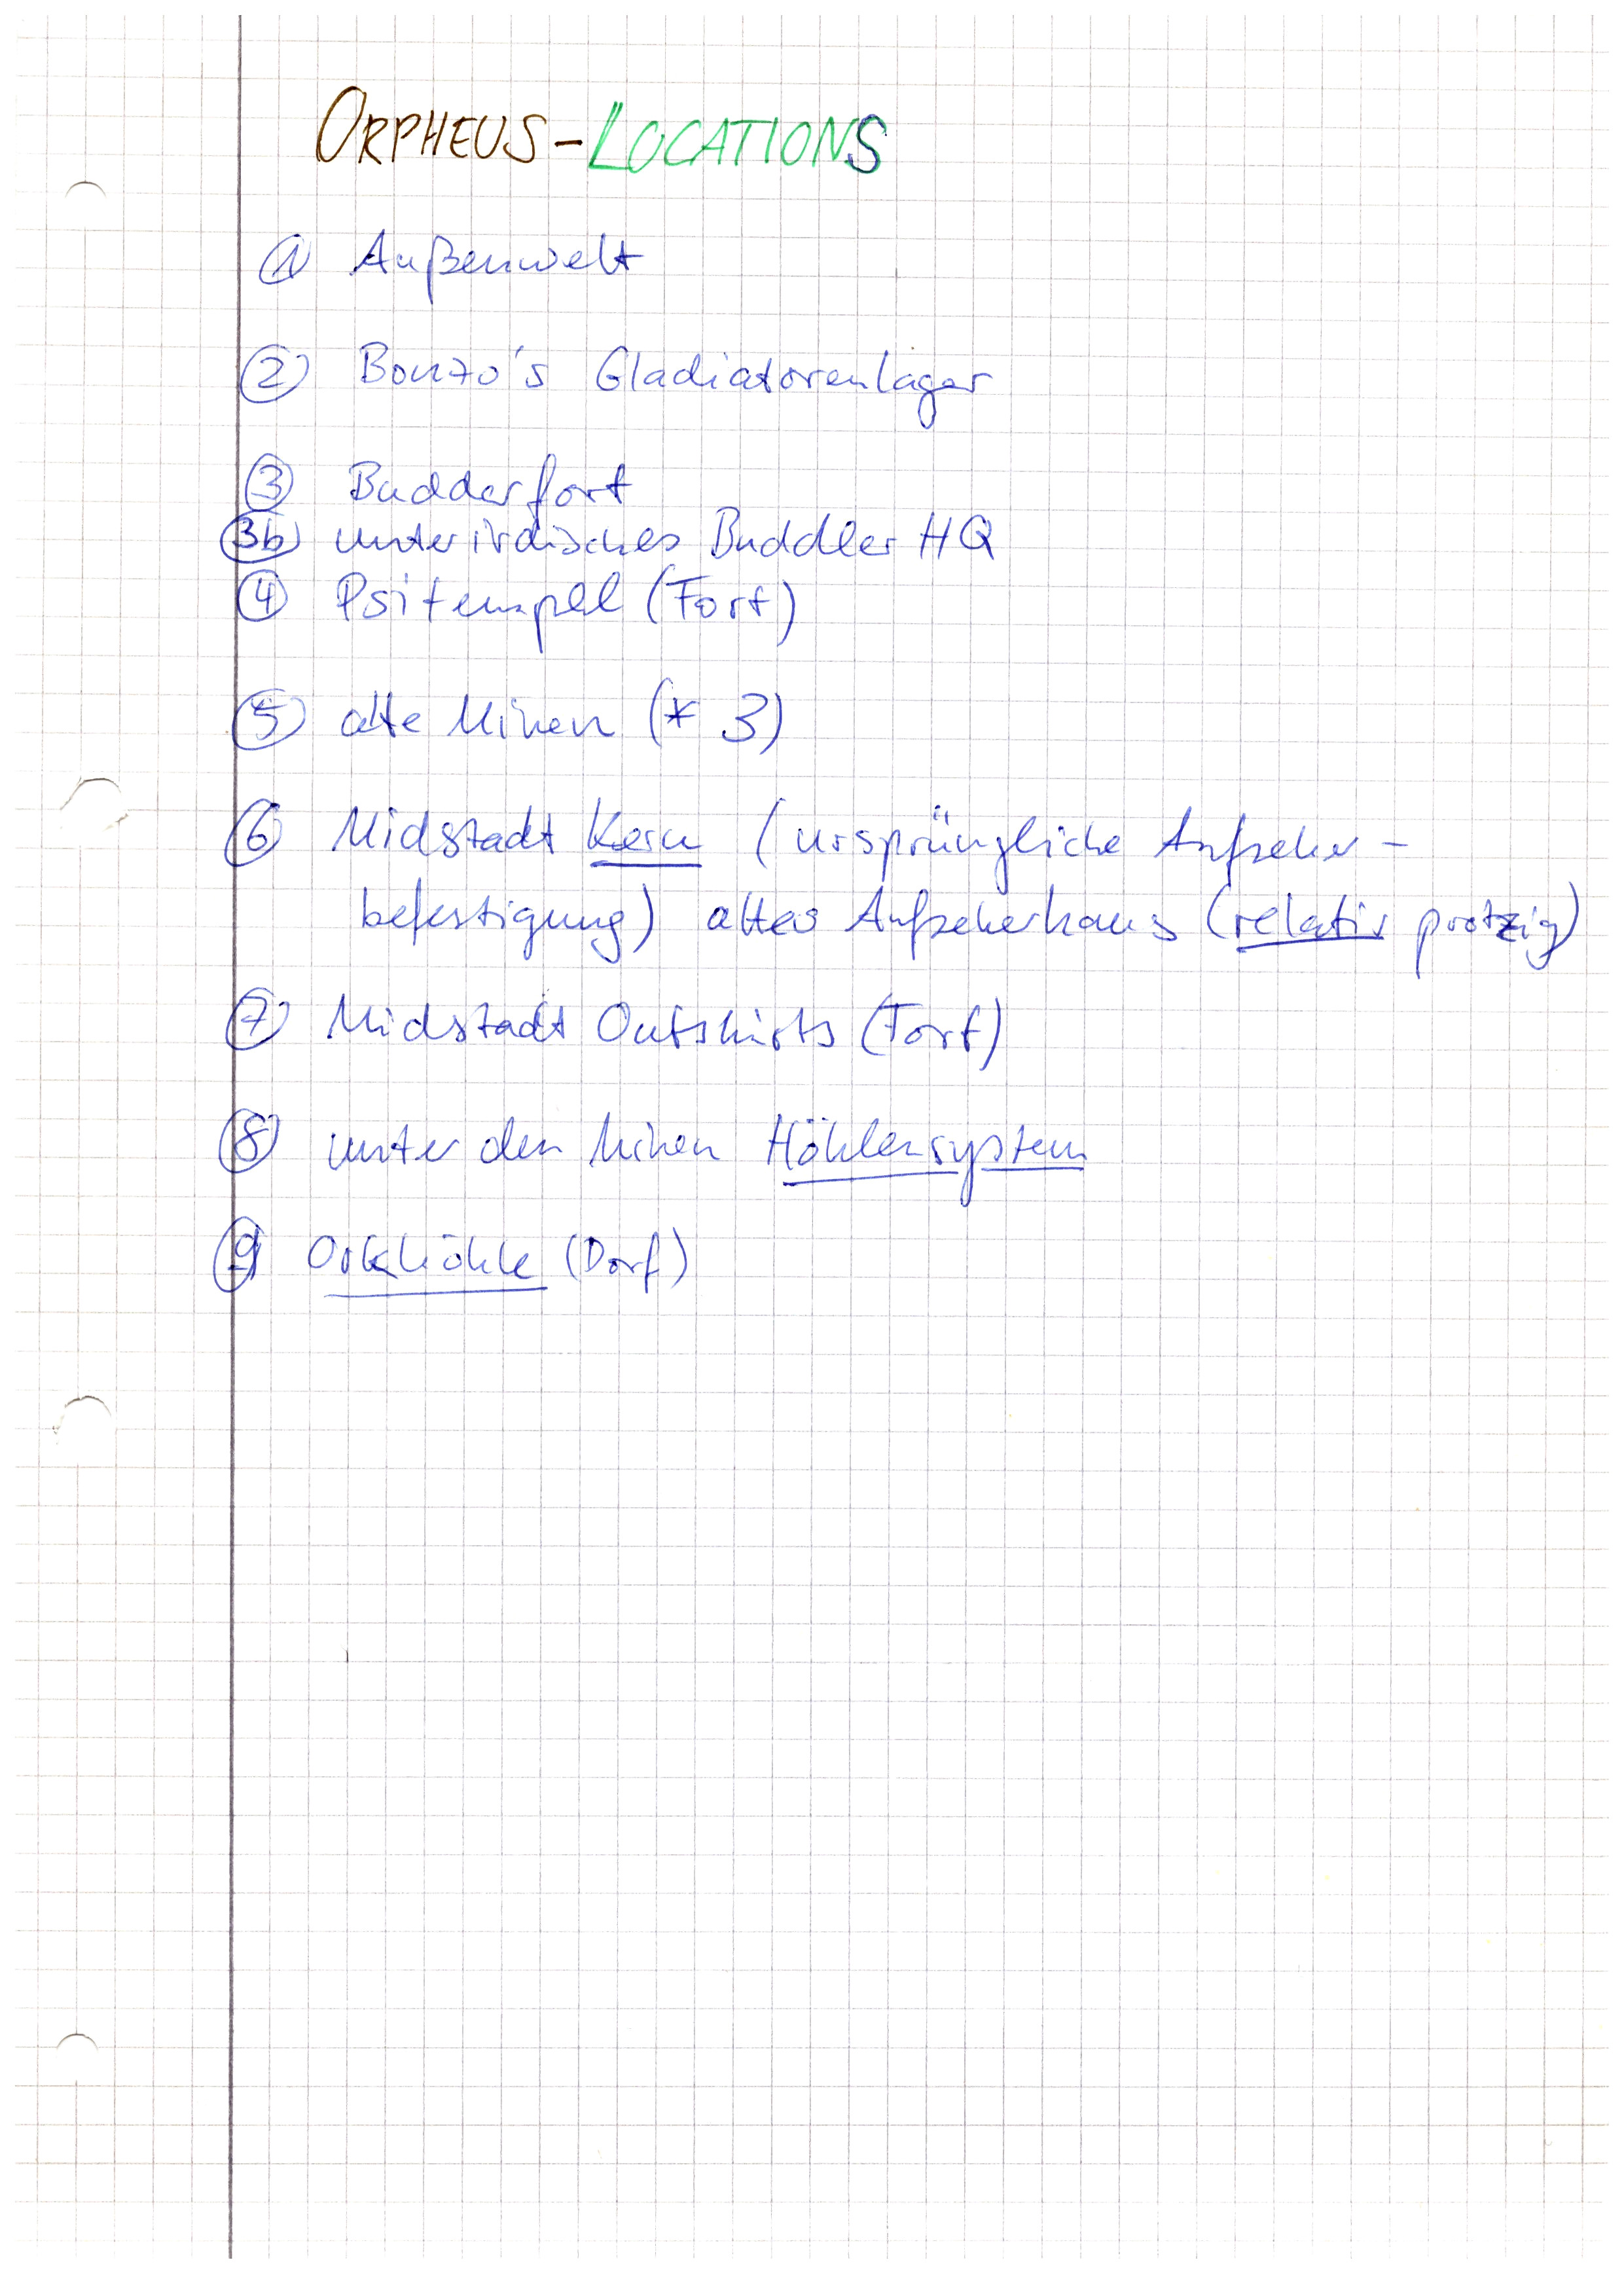 ORPHEUS-LOCATIONS
① Außenwelt
② Bonzo's Gladiatorenlager
③ Budderfort
3b unterirdisches Buddler HQ
④ Psitempel (Fort)
⑤ alte Minen (* 3)
⑥ Midstadt Kern (ursprüngliche Aufseher-
befestigung) altes Aufseherhaus (relativ protzig)
⑦ Midstadt Outskirts (Torf)
⑧ unter den Minen Höhlensystem
⑨ Orkhöhle (Dorf)